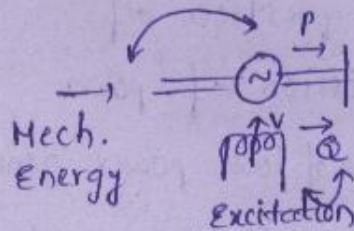 P
~
V
Mech.
Energy
Q
Excitation